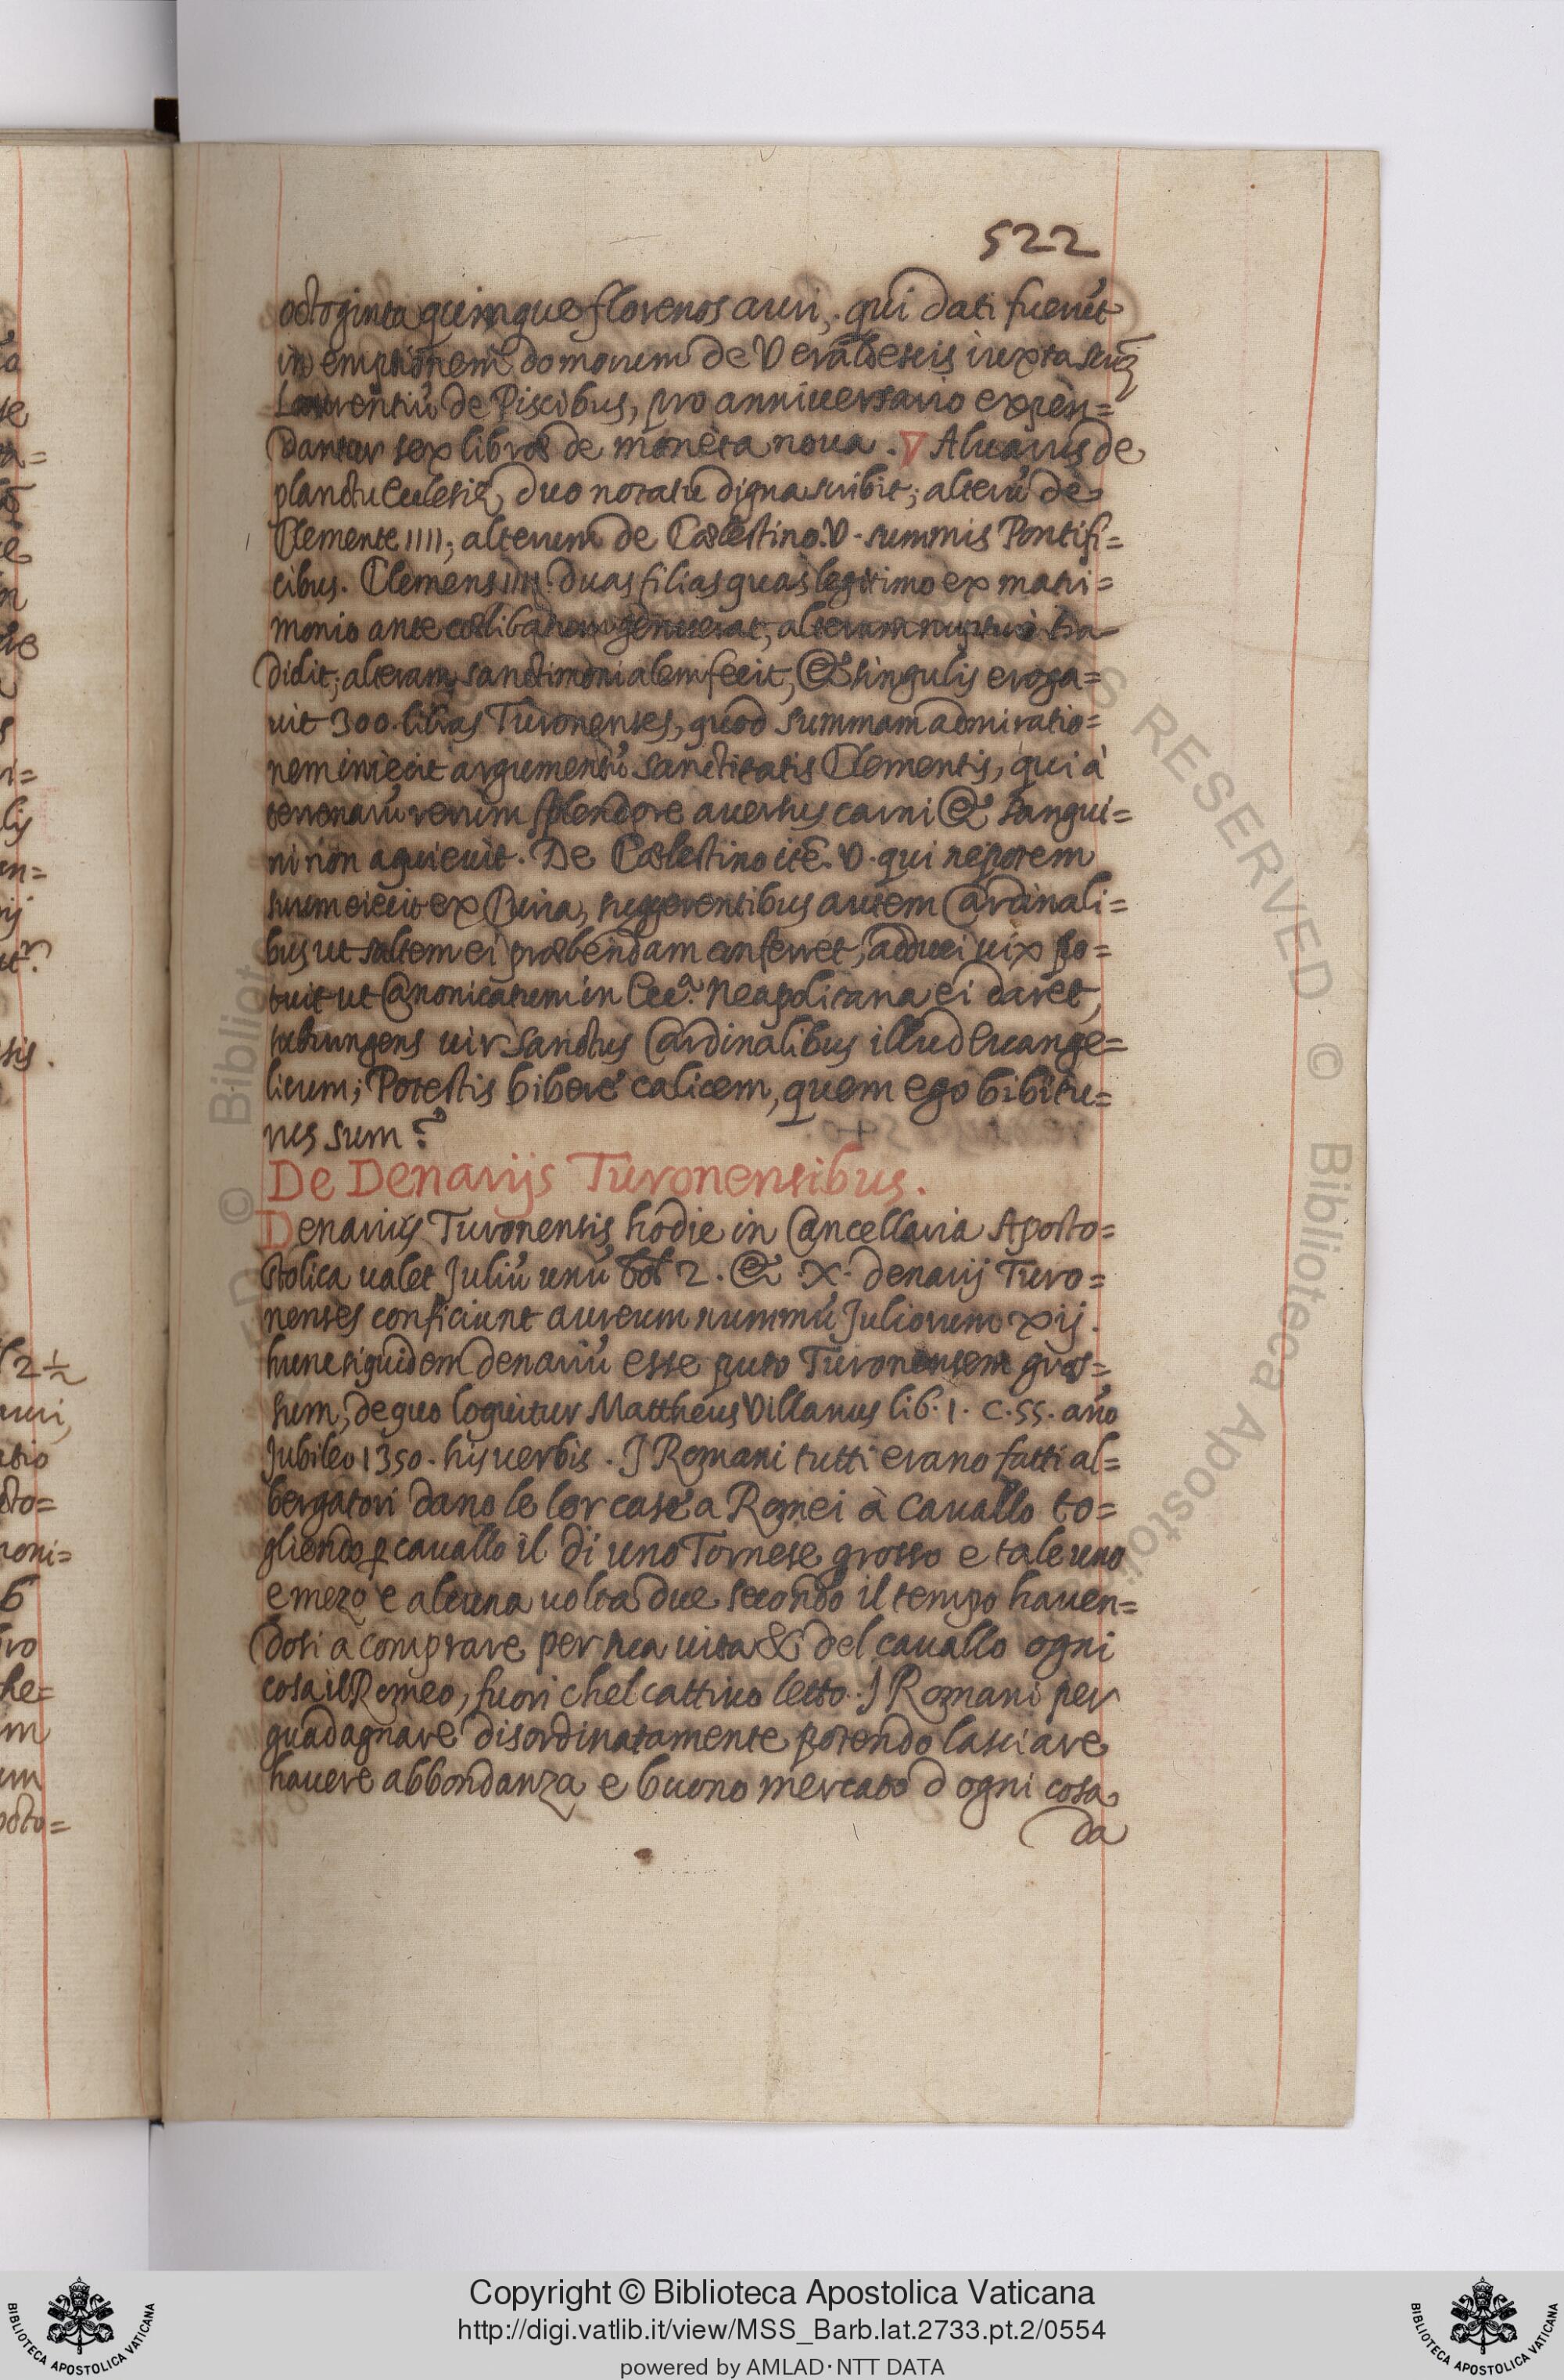 522
octoginta quinque florenos auri, qui dati fuerũt
in emptionem domorum de Veraldescis iuxta
Laurentiũ de Piscibus, pro anniuersario expen=
dantur sex librae de moneta noua. ∇ Aluarus de
planctu Ecclesię duo notatu digna scribit; alterũ de
Clemente IIII; alterum de Cœlestino.V. summis Pontifi=
cibus. Clemens IIII duas filias quas legitimo ex matri=
monio ante cœlibatum genuerat, alteram nuptui tra
didit, alteram sanctimonialem fecit, & singulis eroga=
uit 300. libras Turonenses, quod summam admiratio=
nem iniecit argumentũ sanctitatis Clementis, qui à
terrenarũ rerum splendore auersus carni & sangui=
ni non aquieuit. De Cœlestino itẽ. V. qui nepotem
suum eiecit ex Curia, suggerentibus autem Cardinali=
bus ut saltem ei præbendam conferret, adduci uix po=
tuit ut Canonicatum in Eccᵃ. Neapolitana ei daret,
subiungens uir sanctus Cardinalibus illud Euange=
licum; Potestis bibere calicem, quem ego bibitu=
rus sum?
De Denarijs Turonensibus.
Denarius Turonensis hodie in Cancellaria Aposto=
stolica ualet Juliũ unũ bol 2. & .X. denarij Turo=
nenses conficiunt aureum nummũ Juliorum xij.
hunc siquidem denariũ esse puto Turonensem gros=
sum, de quo loquitur Mattheus Villanus lib. 1. c.55. año
Jubileo 1350. his uerbis. J Romani tutti erano fatti al=
bergatori dano le lor case a Romei à cauallo to=
gliendo p cauallo il di uno Tornese grosso e tale uno
e mezo e alcuna uolta due secondo il tempo hauen=
dosi à comprare per sua uita & del cauallo ogni
cosa il Romeo, fuori chel cattiuo letto. J Romani per
guadagnare disordinatamente potendo lasciare
hauere abbondanza e buono mercato d ogni cosa
da
Copyright © Biblioteca Apostolica Vaticana
http://digi.vatlib.it/view/MSS_Barb.lat.2733.pt.2/0554
powered by AMLAD·NTT DATA
BIBLIOTECA APOSTOLICA VATICANA
BIBLIOTECA APOSTOLICA VATICANA